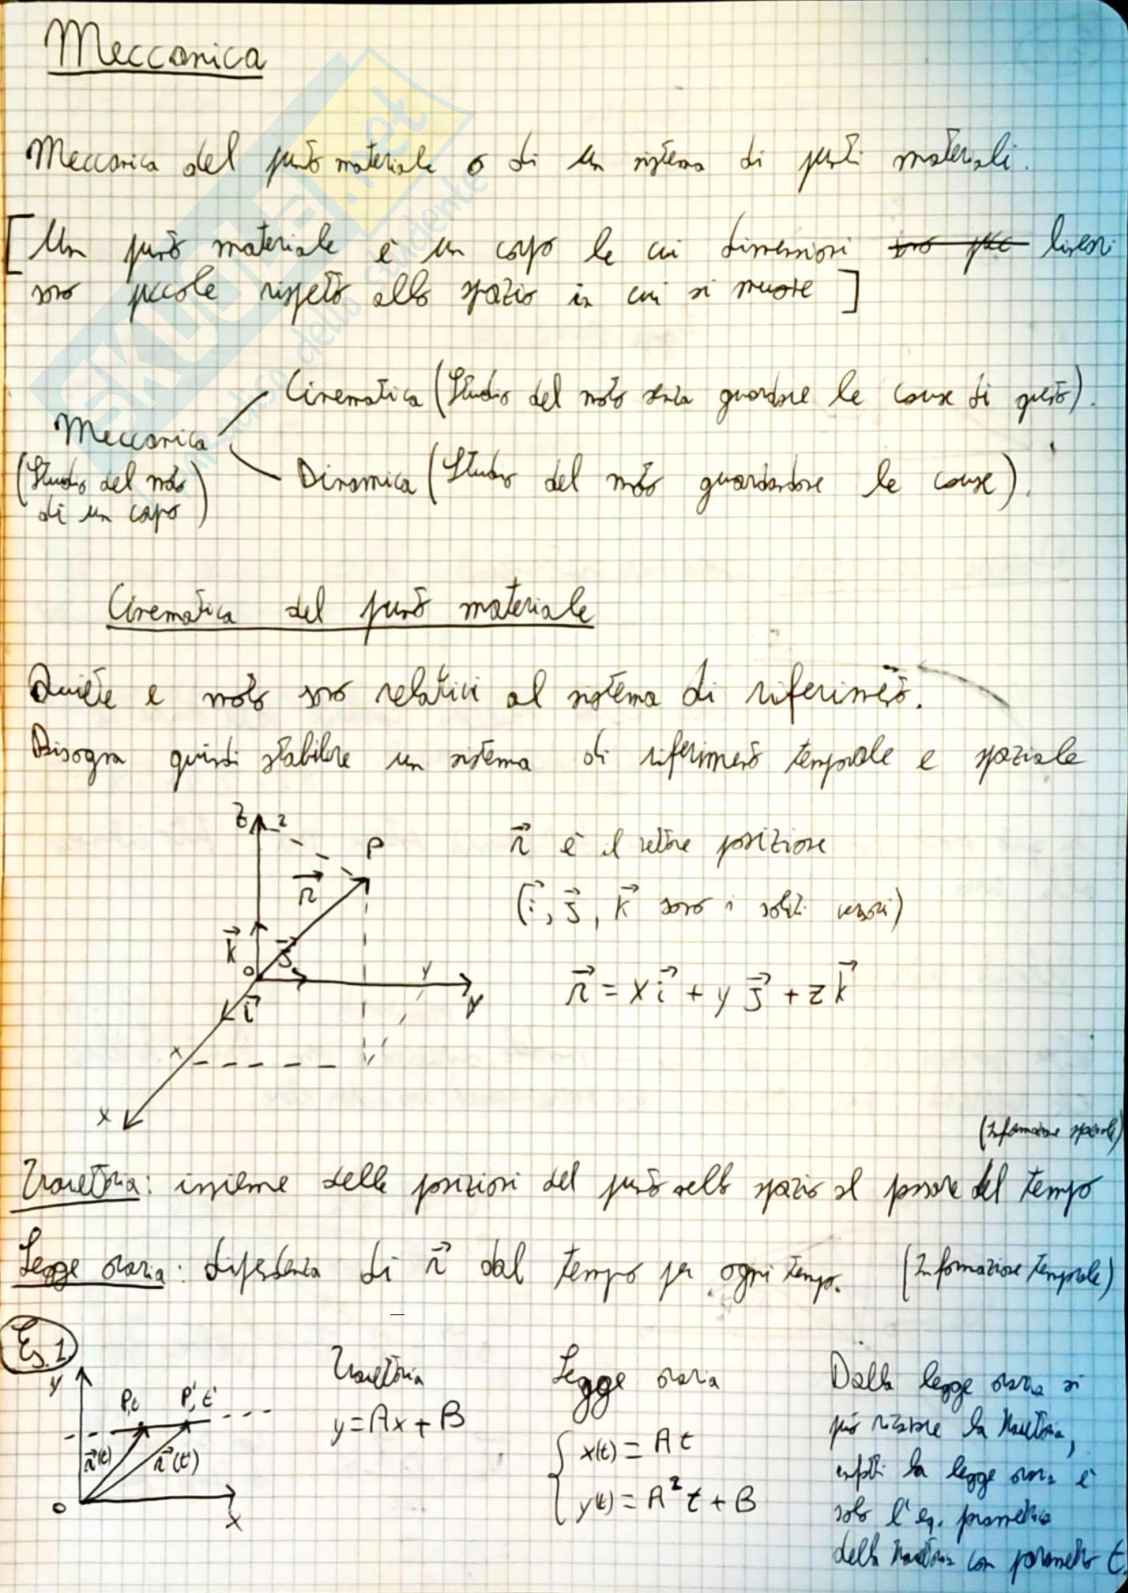 Meccanica
Meccanica del punto materiale o di un sistema di punti materiali.
[Un punto materiale è un corpo le cui dimensioni lineari
sono piccole rispetto allo spazio in cui si muove]
Cinematica (Studio del moto senza guardare le cause di questo).
Meccanica
(Studio del moto
di un corpo)
Dinamica (Studio del moto guardandone le cause).
Cinematica del punto materiale
Quiete e moto sono relativi al sistema di riferimento.
Bisogna quindi stabilire un sistema di riferimento temporale e spaziale
z z
P
r⃗
k⃗ j⃗
O y y
i⃗
x
x
r⃗ è il vettore posizione
(i⃗, j⃗, k⃗ sono i soliti versori)
r⃗ = x i⃗ + y j⃗ + z k⃗
(Informazione spaziale)
Traiettoria: insieme delle posizioni del punto nello spazio al passare del tempo
Legge oraria: dipendenza di r⃗ dal tempo per ogni tempo. (Informazione temporale)
Es. 1
y
P,t P',t'
r⃗(t) r⃗(t)
O x
Traiettoria
y = Ax + B
Legge oraria
x(t) = At
y(t) = A² t + B
Dalla legge oraria si
può ricavare la traiettoria,
infatti la legge oraria è
solo l'eq. parametrica
della traiettoria con parametro t